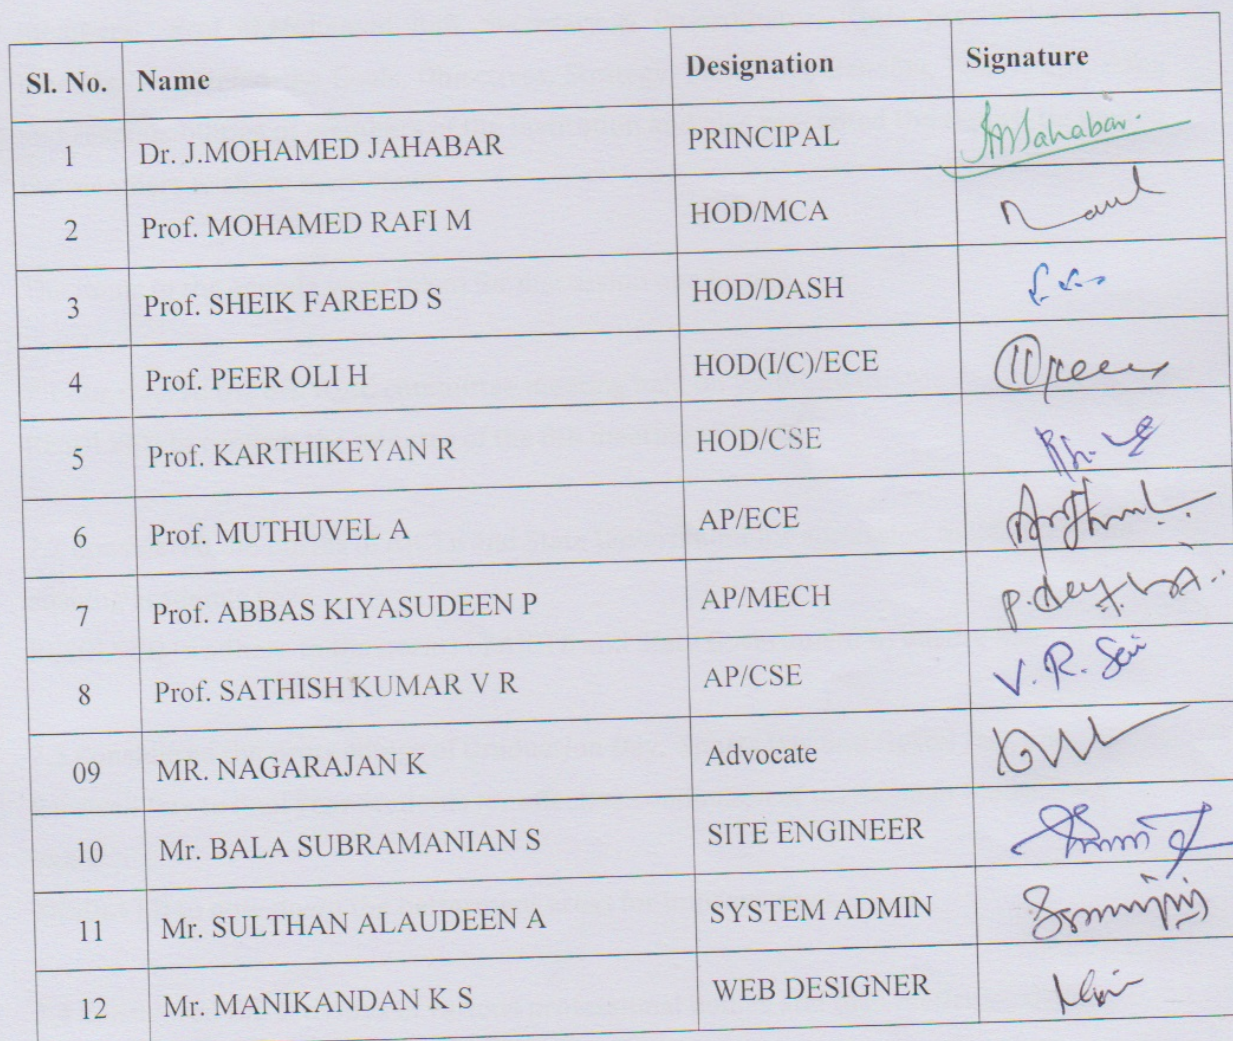 Sl. No. Name Designation Signature
1 Dr. J.MOHAMED JAHABAR PRINCIPAL JMJahabar.
2 Prof. MOHAMED RAFI M HOD/MCA
3 Prof. SHEIK FAREED S HOD/DASH
4 Prof. PEER OLI H HOD(I/C)/ECE
5 Prof. KARTHIKEYAN R HOD/CSE
6 Prof. MUTHUVEL A AP/ECE
7 Prof. ABBAS KIYASUDEEN P AP/MECH
8 Prof. SATHISH KUMAR V R AP/CSE V. R.
09 MR. NAGARAJAN K Advocate
10 Mr. BALA SUBRAMANIAN S SITE ENGINEER
11 Mr. SULTHAN ALAUDEEN A SYSTEM ADMIN
12 Mr. MANIKANDAN K S WEB DESIGNER